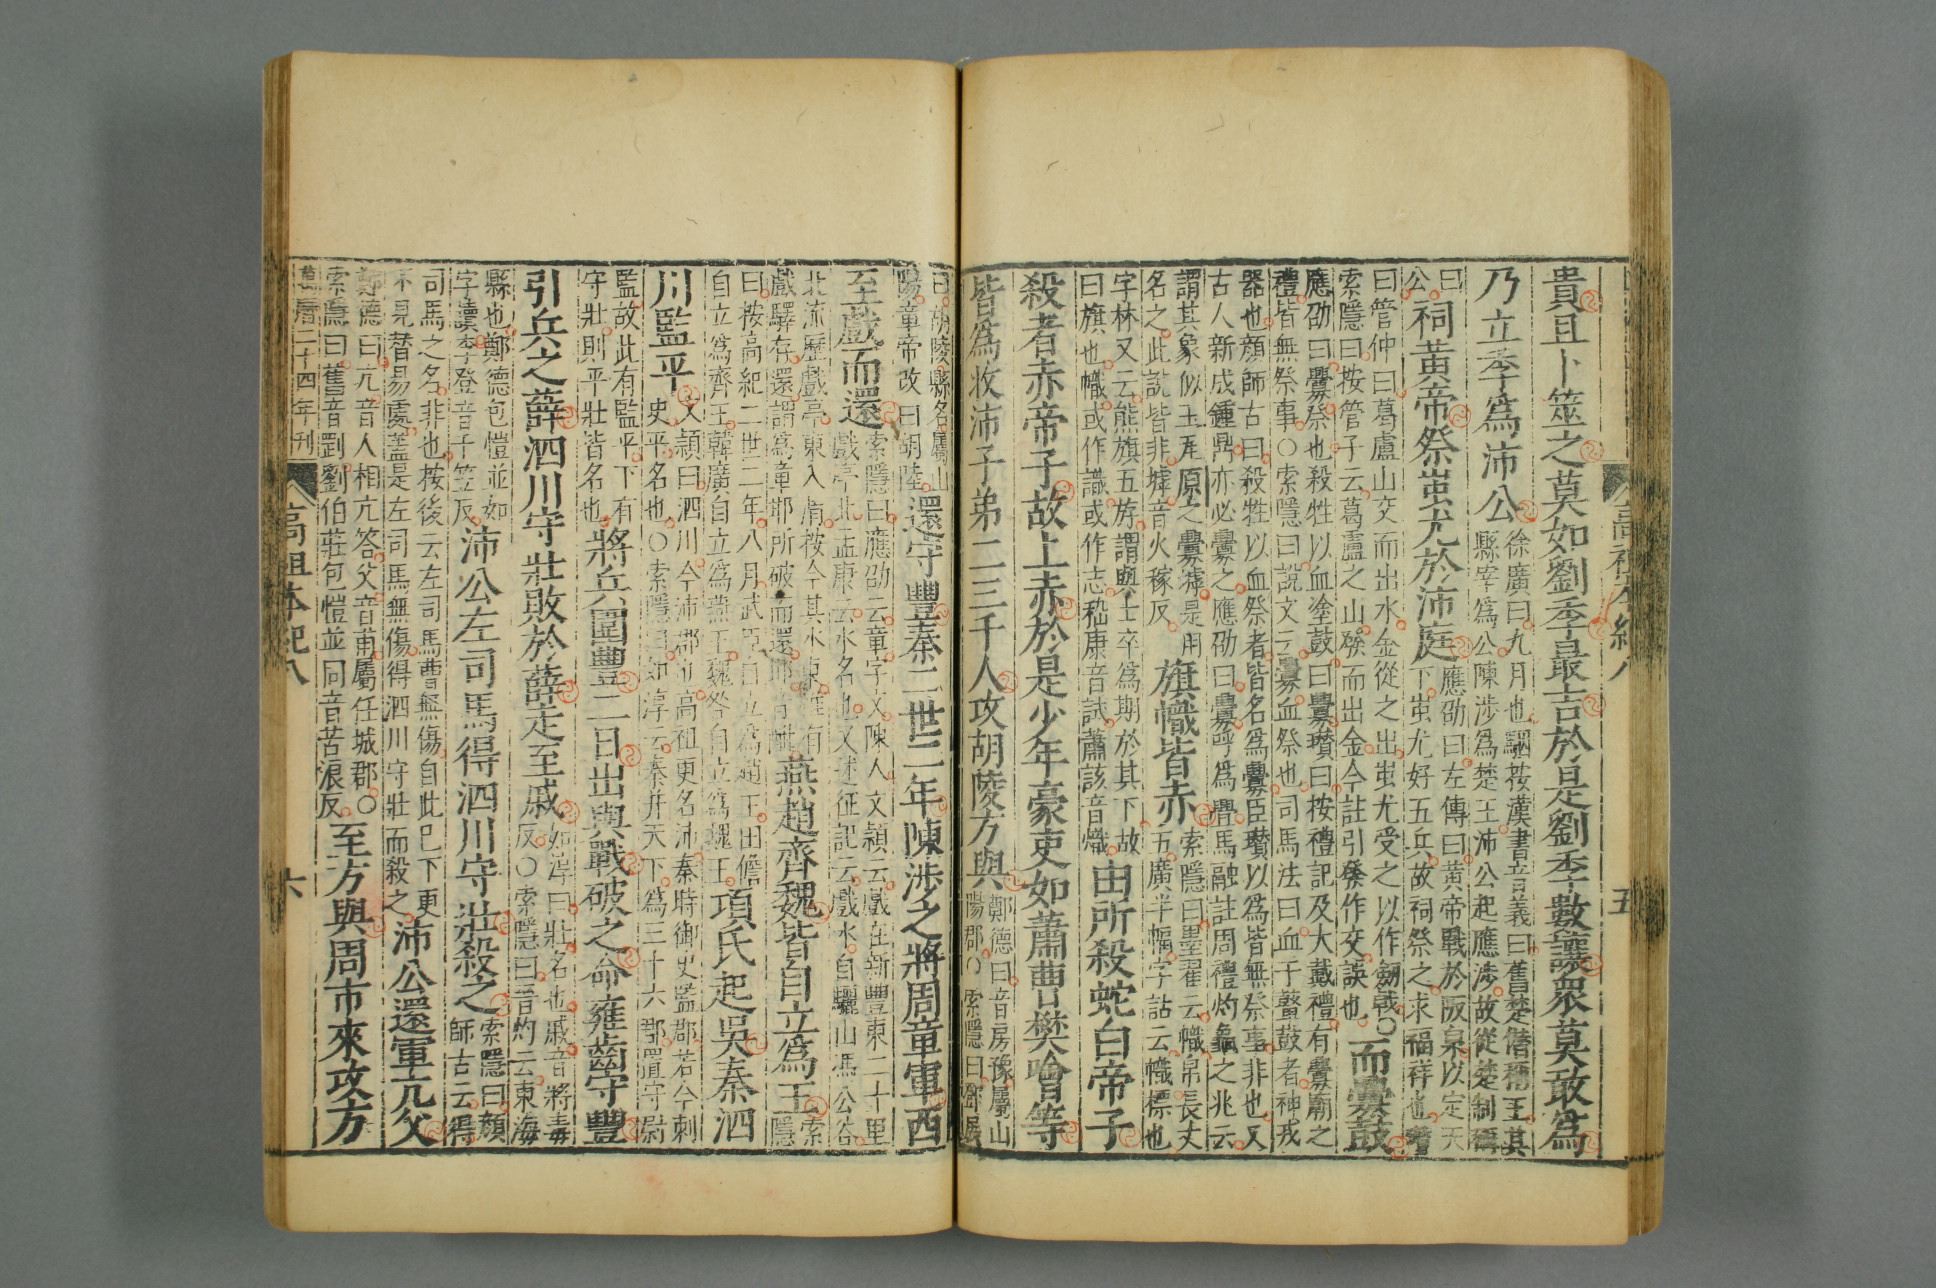 高祖本紀八　五
貴且卜筮之莫如劉季最吉於是劉季數讓衆莫敢爲
乃立季爲沛公徐廣曰九月也駰按漢書音義曰舊楚僭稱王其縣宰爲公陳涉爲楚王沛公起應涉故從楚制稱
曰公祠黃帝祭蚩尤於沛庭應劭曰左傳曰黃帝戰於阪泉以定天下蚩尤好五兵故祠祭之求福祥也瓚
曰管仲曰葛盧山交而出水金從之出蚩尤受之以作劒戟○索隱曰按管子云葛盧之山發而出金今註引發作交誤也而釁鼓
應劭曰釁祭也殺牲以血塗鼓曰釁瓚曰按禮記及大戴禮有釁廟之禮皆無祭事○索隱曰說文云釁血祭也司馬法曰血于鼙鼓者神戎
器也顏師古曰殺牲以血祭者皆名爲釁臣瓚以爲皆無祭事非也又古人新成鍾鼎亦必釁之應劭曰釁呼爲舋馬融註周禮灼龜之兆云
謂其象似玉瓦原之釁罅是用名之此說皆非罅音火稼反旗幟皆赤索隱曰墨翟云幟帛長丈五廣半幅字詁云幟標也
字林又云熊旗五斿謂與士卒爲期於其下故曰旗也幟或作識或作志嵇康音試蕭該音熾由所殺蛇白帝子
殺者亦帝子故上赤於是少年豪吏如蕭曹樊噲等
皆爲收沛子弟二三千人攻胡陵方與鄭德曰音房豫屬山陽郡○索隱曰鄧展
曰胡陵縣名屬山陽章帝改曰胡陸還守豐秦二世二年陳涉之將周章軍西
至戲而還索隱曰應劭云章字文陳人文頴云戲在新豐東二十里戲亭北孟康云水名也又述征記云戲水自驪山馮公谷
北流歷戲亭東入渭按今其水東惟有戲驛存還謂爲章邯所破而還邯字酣燕趙齊魏皆自立爲王索隱
曰按高紀二世二年八月武臣自立爲趙王田儋自立爲齊王韓廣自立爲燕王魏咎自立爲魏王項氏起吳秦泗
川監平文頴曰泗川今沛郡川高祖更名沛秦時御史監郡若今刺史平名也○索隱曰如淳云秦并天下爲三十六郡置守尉
監故此有監平下有守壯則平壯皆名也將兵圍豐二日出與戰破之命雍齒守豐
引兵之薛泗川守壯敗於薛走至戚如淳曰壯名也戚音將毒反○索隱曰晉灼云東海
縣也鄭德包愷並如字讀李登音千笠反沛公左司馬得泗川守壯殺之索隱曰顏師古云得
司馬之名非也按後云左司馬曹無傷自此已下更不見替易處蓋是左司馬無傷得泗川守壯而殺之沛公還軍亢父
鄭德曰亢音人相亢答父音甫屬任城郡○索隱曰舊音劉劉伯莊包愷並同音苦浪反至方與周市來攻方
萬曆二十四年刊　高祖本紀八　六